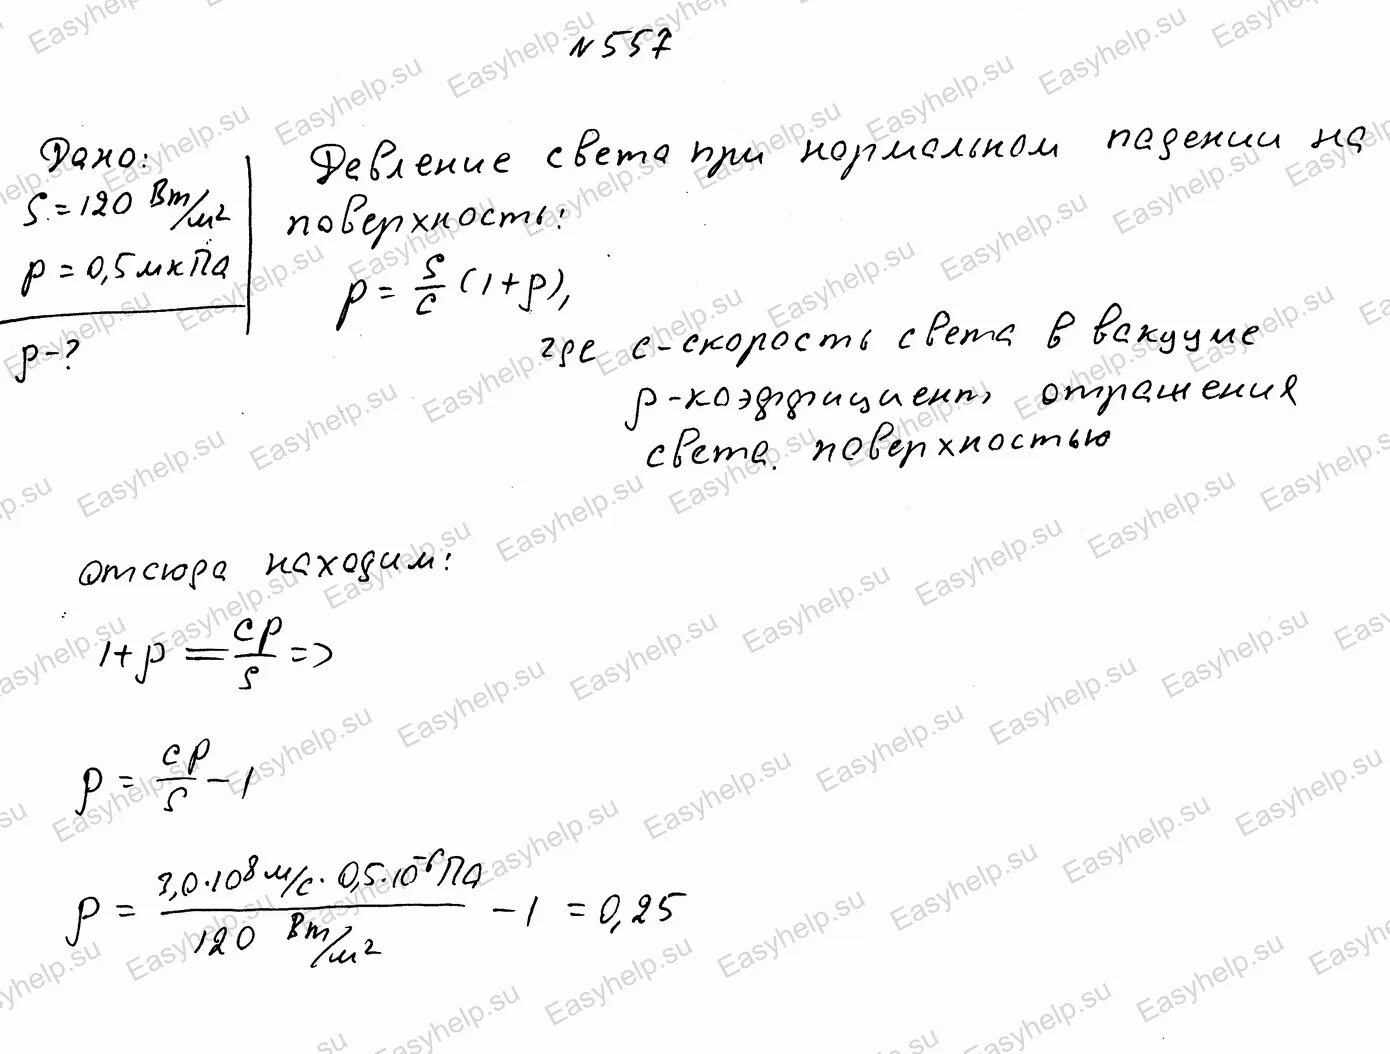 №557
Дано:
S = 120 Вт/м²
p = 0,5 мкПа
ρ - ?
Девление света при нормальном падении на
поверхность:
p = S/c (1+ρ),
где c - скорость света в вакууме
ρ - коэффициент отражения
света поверхностью
Отсюда находим:
1+ρ = cp/S =>
ρ = cp/S - 1
ρ = 3,0·10⁸ м/с · 0,5·10⁻⁶ Па / 120 Вт/м² - 1 = 0,25
Easyhelp.su